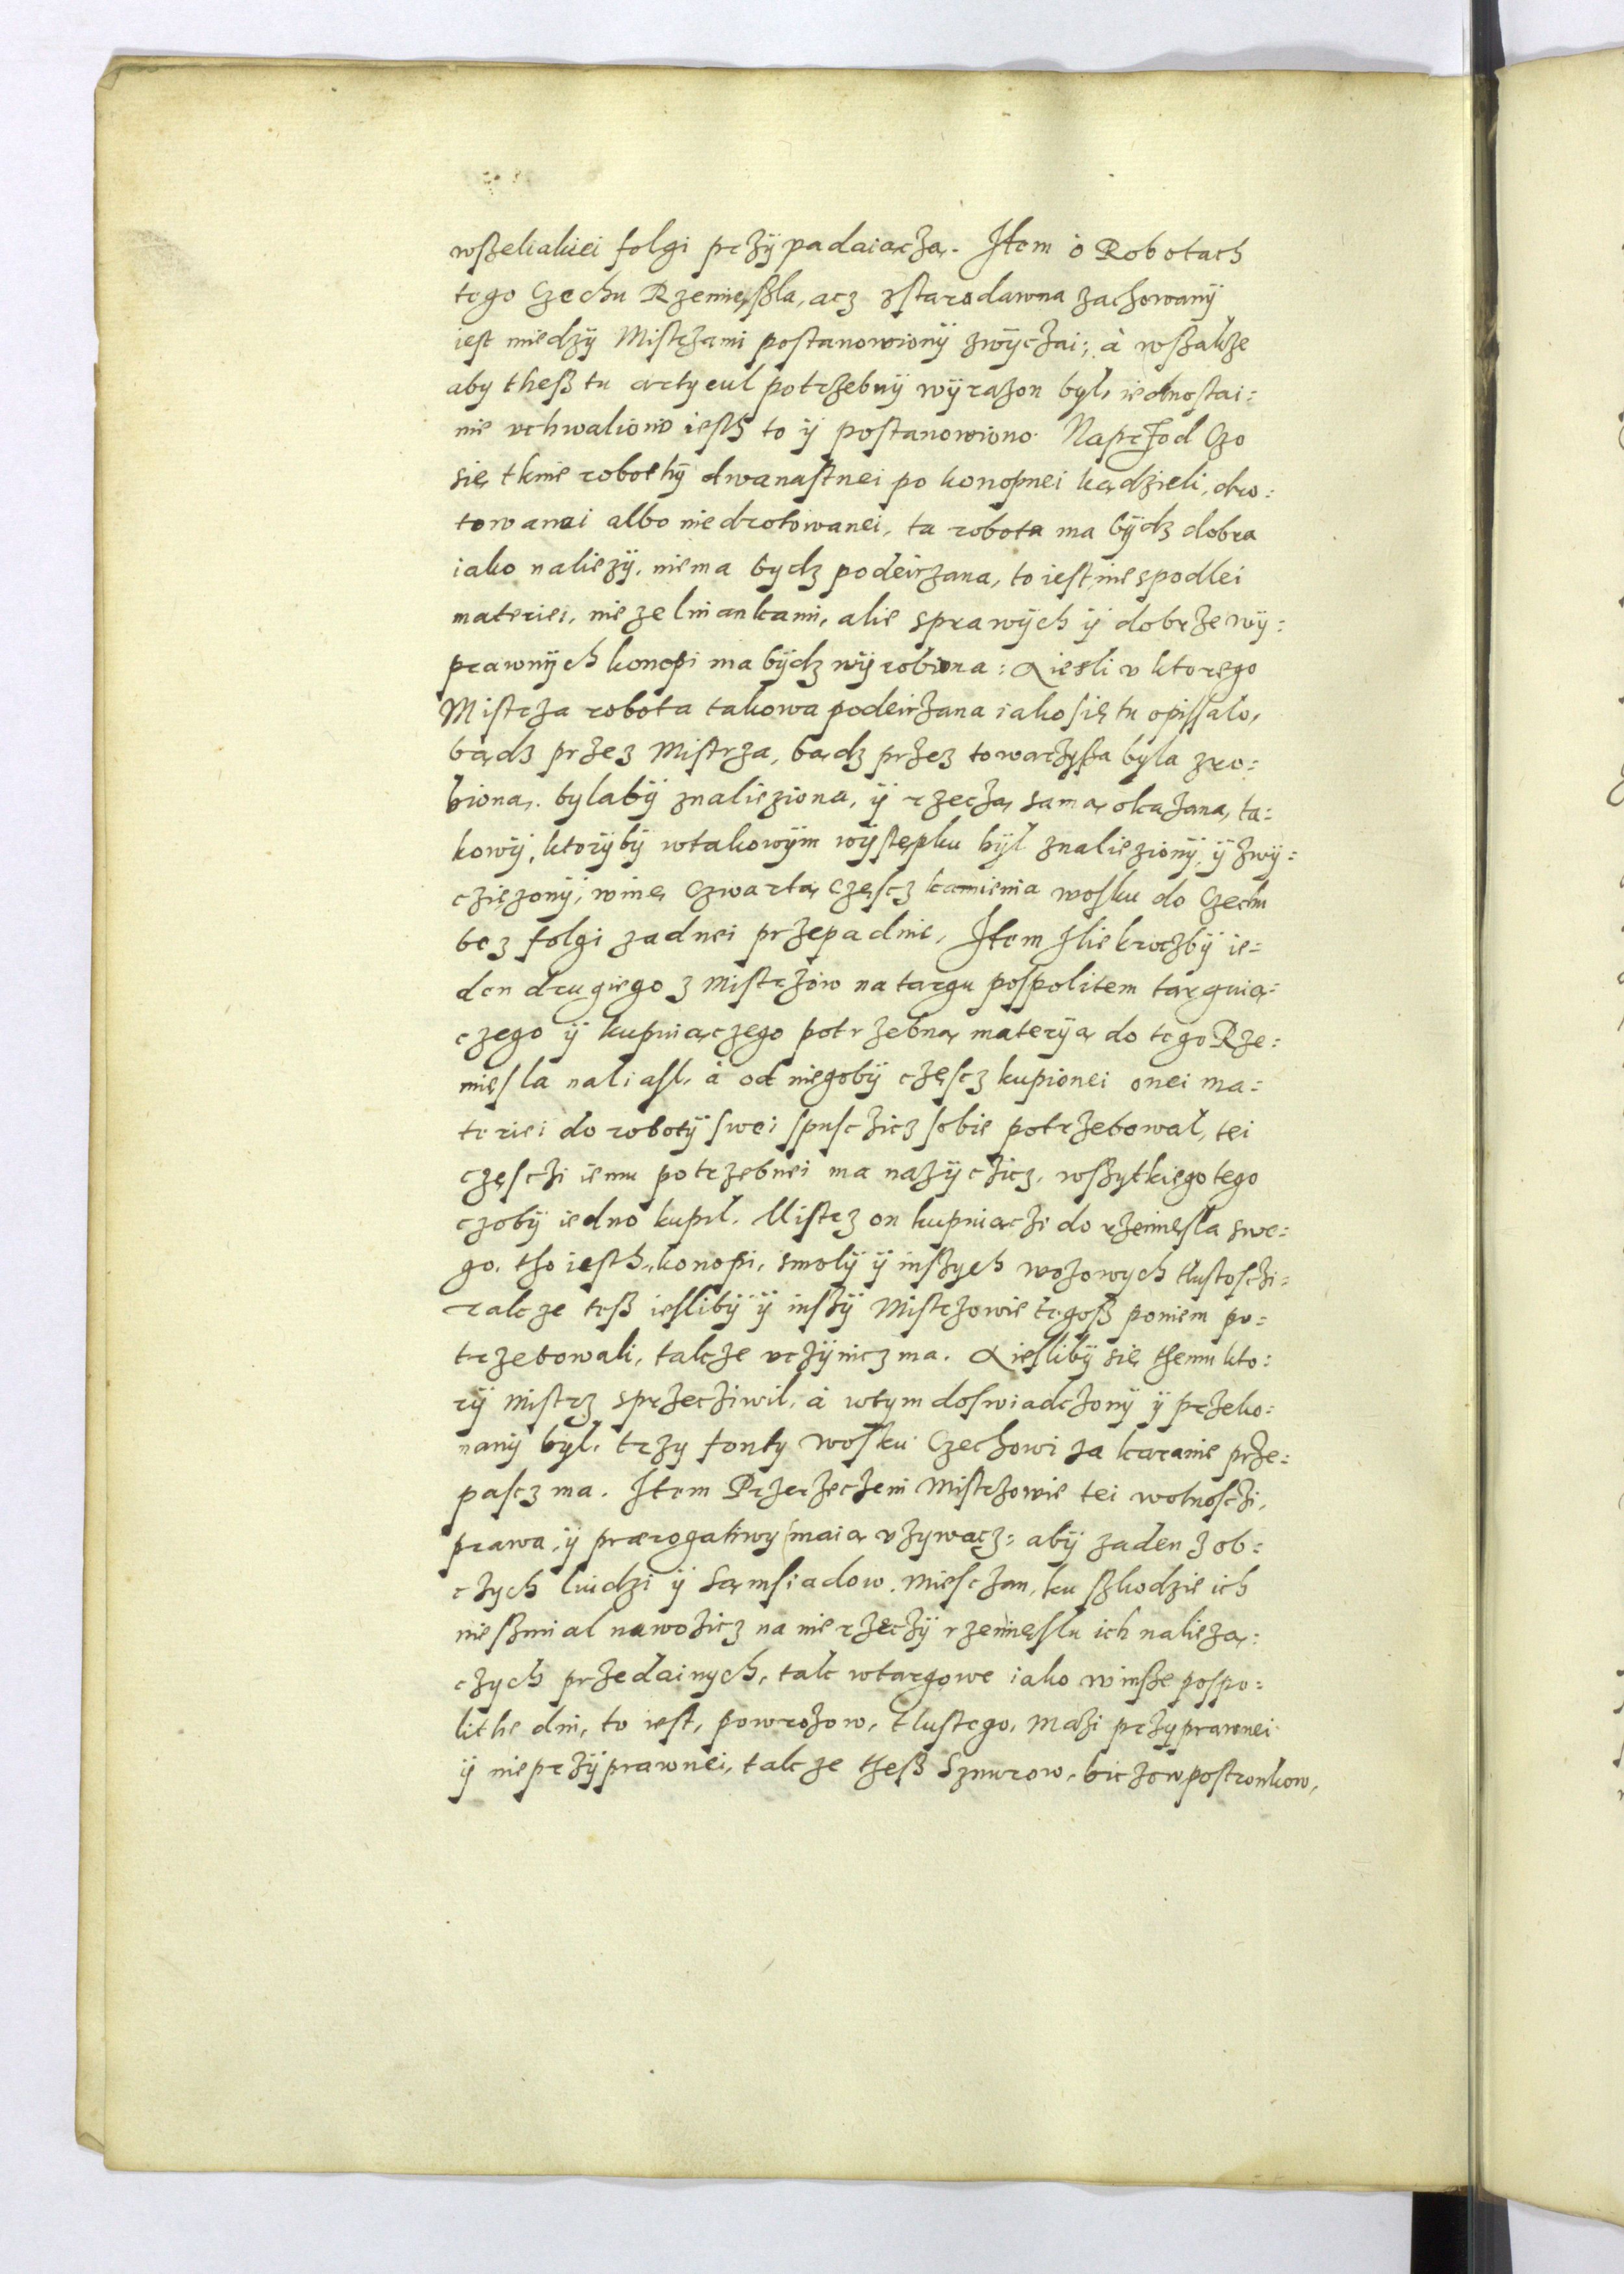 wszeliakiei folgi przÿpadaiącżą. Item o Robotach
tego Czechu Rzemięsśla, acz zstarodawna zachowanÿ
iest miedzÿ Mistrżami postanowionÿ zwÿcżai; à wszakże
aby thesz tu artycul potrzebnÿ wÿrażon był, iednostai=
nie vchwaliono iesth to ÿ postanowiono. Naprżod Czo
się tknie robothÿ dwanastnei po konopnei kądzieli, dro=
towanei albo niedrotowanei, ta robota ma bÿdz dobra
iako naliezÿ, niema bydz podeirżana, to iest, nie spodlei
materiei, nie zelniankami, alie sprawÿch ÿ dobrże wÿ=
prawnÿch konopi ma bÿdz wÿrobiona: A iesli v ktorego
Mistrża robota takowa podeirżana iako się tu opissało,
bądz przez Mistrża, bądz przez towarżysza była zro=
biona, byłabÿ znalieziona, ÿ rzecżą samą okażana, ta=
kowÿ, ktorÿbÿ wtakowÿm wÿstępku bÿł znalieżionÿ, ÿ zwÿ=
cziężonÿ, winę czwartą częscz kamienia wosku do Czechu
bez folgi żadnei przepadnie. Item Iliekrocżbÿ ie=
den drugiego z Mistrżow na targu pospolitem targuią=
czego ÿ kupuiączego potrzebną materÿą do tego Rze=
mięsła naliasł, à od niegobÿ częscz kupionei onei ma=
teriei do robotÿ swei spuscżicz sobie potrżebował, tei
częscżi iemu potrzebnei ma nażÿcżicz, wszytkiego tego
czobÿ iedno kupił. Mistrz on kupuiacżi do rżemięsla swe=
go, tho iesth, konopi, smolÿ ÿ inszych wożowych tłustoscżi.
Takze tesz ieslibÿ ÿ inszÿ Mistrżowie tegosz poniem po=
trzebowali, także vcżÿnicz ma. A ieslibÿ się themu kto=
rÿ Mistrz sprżecżiwił, à wtym doswiadcżonÿ ÿ prżeko=
nanÿ był, trzy fonty wosku Czechowi za karanie prże=
pascz ma. Item Prżerżecżeni Mistrżowie tei wolnoscżi,
prawa, ÿ prærogatiwy maią vżywacz: abÿ żaden z ob=
cżych liudzi ÿ Sąmsiadow, miescżan, ku szkodzie ich
nie szmiał nawożicz na nie rżecżÿ rzemięslu ich należą=
cżych prżedainych, tak wtargowe iako winsze pospo=
lithe dni, to iest, powrożow, tłustego, Mażi prżyprawnei
ÿ nieprżÿprawnei, takze thesz Sznurow, bicżow, postronkow,